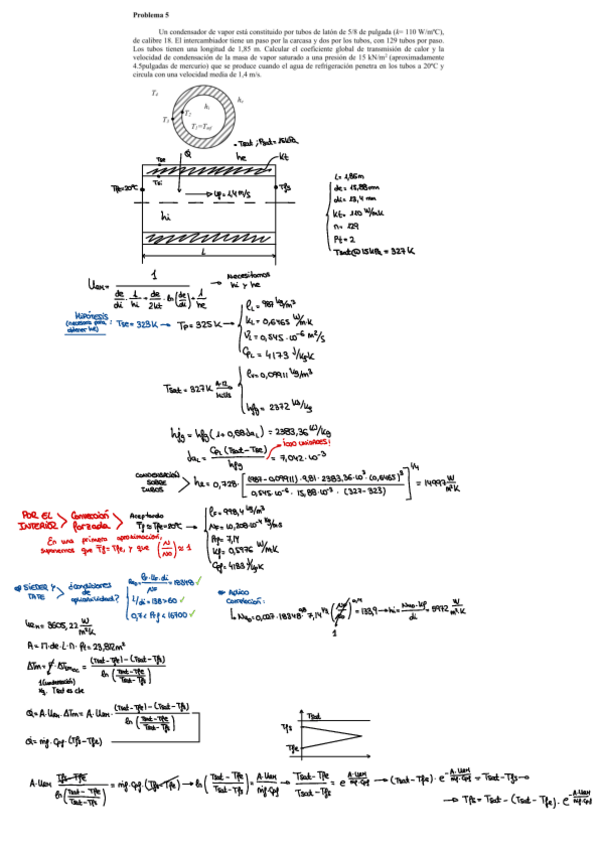 Problema 5
Un condensador de vapor está constituido por tubos de latón de 5/8 de pulgada (k= 110 W/mºC),
de calibre 18. El intercambiador tiene un paso por la carcasa y dos por los tubos, con 129 tubos por paso.
Los tubos tienen una longitud de 1,85 m. Calcular el coeficiente global de transmisión de calor y la
velocidad de condensación de la masa de vapor saturado a una presión de 15 kN/m² (aproximadamente
4.5pulgadas de mercurio) que se produce cuando el agua de refrigeración penetra en los tubos a 20ºC y
circula con una velocidad media de 1,4 m/s.
T₄
hₒ
hᵢ
T₃
T₂
Q
he
kt
Tse
Tsi
Tfe=20ºC
Tfs
hi
L
L= 1,85m
de= 15,88mm
di= 13,4 mm
kt= 110 W/mK
n= 129
Pt= 2
Tsat@15kPa = 327K
Uex= 1 / (de/di · 1/hi + de/2kt · ln(de/di) + 1/he) → Necesitamos hi y he
Hipótesis (necesaria para obtener he): Tse= 323K → Tp= 325K →
ρL= 987 kg/m³
kL= 0,6465 W/m·K
νL= 0,545·10⁻⁶ m²/s
CpL= 4179 J/kgK
Tsat= 327K A-12
ρv= 0,09911 kg/m³
hfg= 2372 kJ/kg
h'fg= hfg(1+0,68JaL) = 2383,36 kJ/kg
JaL= CpL (Tsat-Tse) / hfg = 7,042·10⁻³
¡OJO UNIDADES!
CONDENSACIÓN SOBRE TUBOS
he= 0,728· [(987-0,09911)·9,81·2383,36·10³·(0,6465)³ / 0,545·10⁻⁶·15,88·10⁻³·(327-323)]^1/4 = 14997 W/m²K
POR EL INTERIOR
Convección forzada
Aceptando Tf ≈ Tfe=20ºC →
En una primera aproximación,
suponemos que Tf= Tfe, y que ≈ 1
ρf= 998,4 kg/m³
Prf= 7,14
kf= 0,5976 W/mK
Cpf= 4183 J/kgK
SIEDER Y TATE
¿Condiciones de aplicabilidad?
= 18348 ✓
L/di= 138>60 ✓
0,7< Prf < 16700 ✓
Aplico correlación:
= 0,027·18348^0,8·7,14^1/3 = 133,9 → hi= Nu·kf/di = 5972 W/m²K
= 3605,22 W/m²K
A= π·de·L·n·Pt= 23,812m²
= (Tsat-Tfe)-(Tsat-Tfs) / ln(Tsat-Tfe/Tsat-Tfs)
1 (condensación)
Tsat es cte
Q̇= A·Uex·ΔTm= A·Uex· (Tsat-Tfe)-(Tsat-Tfs) / ln(Tsat-Tfe/Tsat-Tfs)
Q̇= ṁf·Cpf·(Tfs-Tfe)
Tsat
Tfs
Tfe
A·Uex· Tfs-Tfe / ln(Tsat-Tfe/Tsat-Tfs) = ṁf·Cpf·(Tfs-Tfe) → ln(Tsat-Tfe/Tsat-Tfs) = A·Uex/ṁf·Cpf → Tsat-Tfe/Tsat-Tfs = e^(A·Uex/ṁf·Cpf) → (Tsat-Tfe)·e^(-A·Uex/ṁf·Cpf) = Tsat-Tfs →
→ Tfs= Tsat-(Tsat-Tfe)·e^(-A·Uex/ṁf·Cpf)